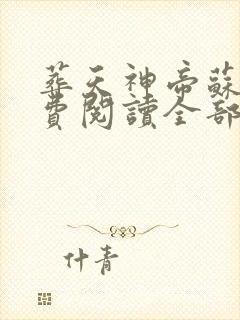 葬天神帝蘇
費閱讀全部
什青